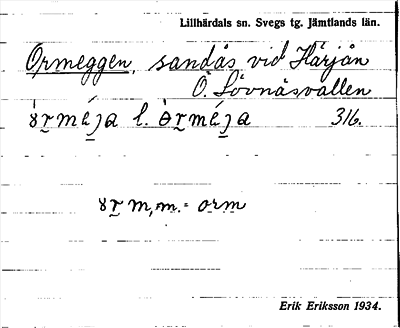 Lillhärdals sn. Svegs tg. Jämtlands län.
Ormeggen, sandås vid Härjån
Ö. Lövnäsvallen
l. 316.
m, m. = orm
Erik Eriksson 1934.